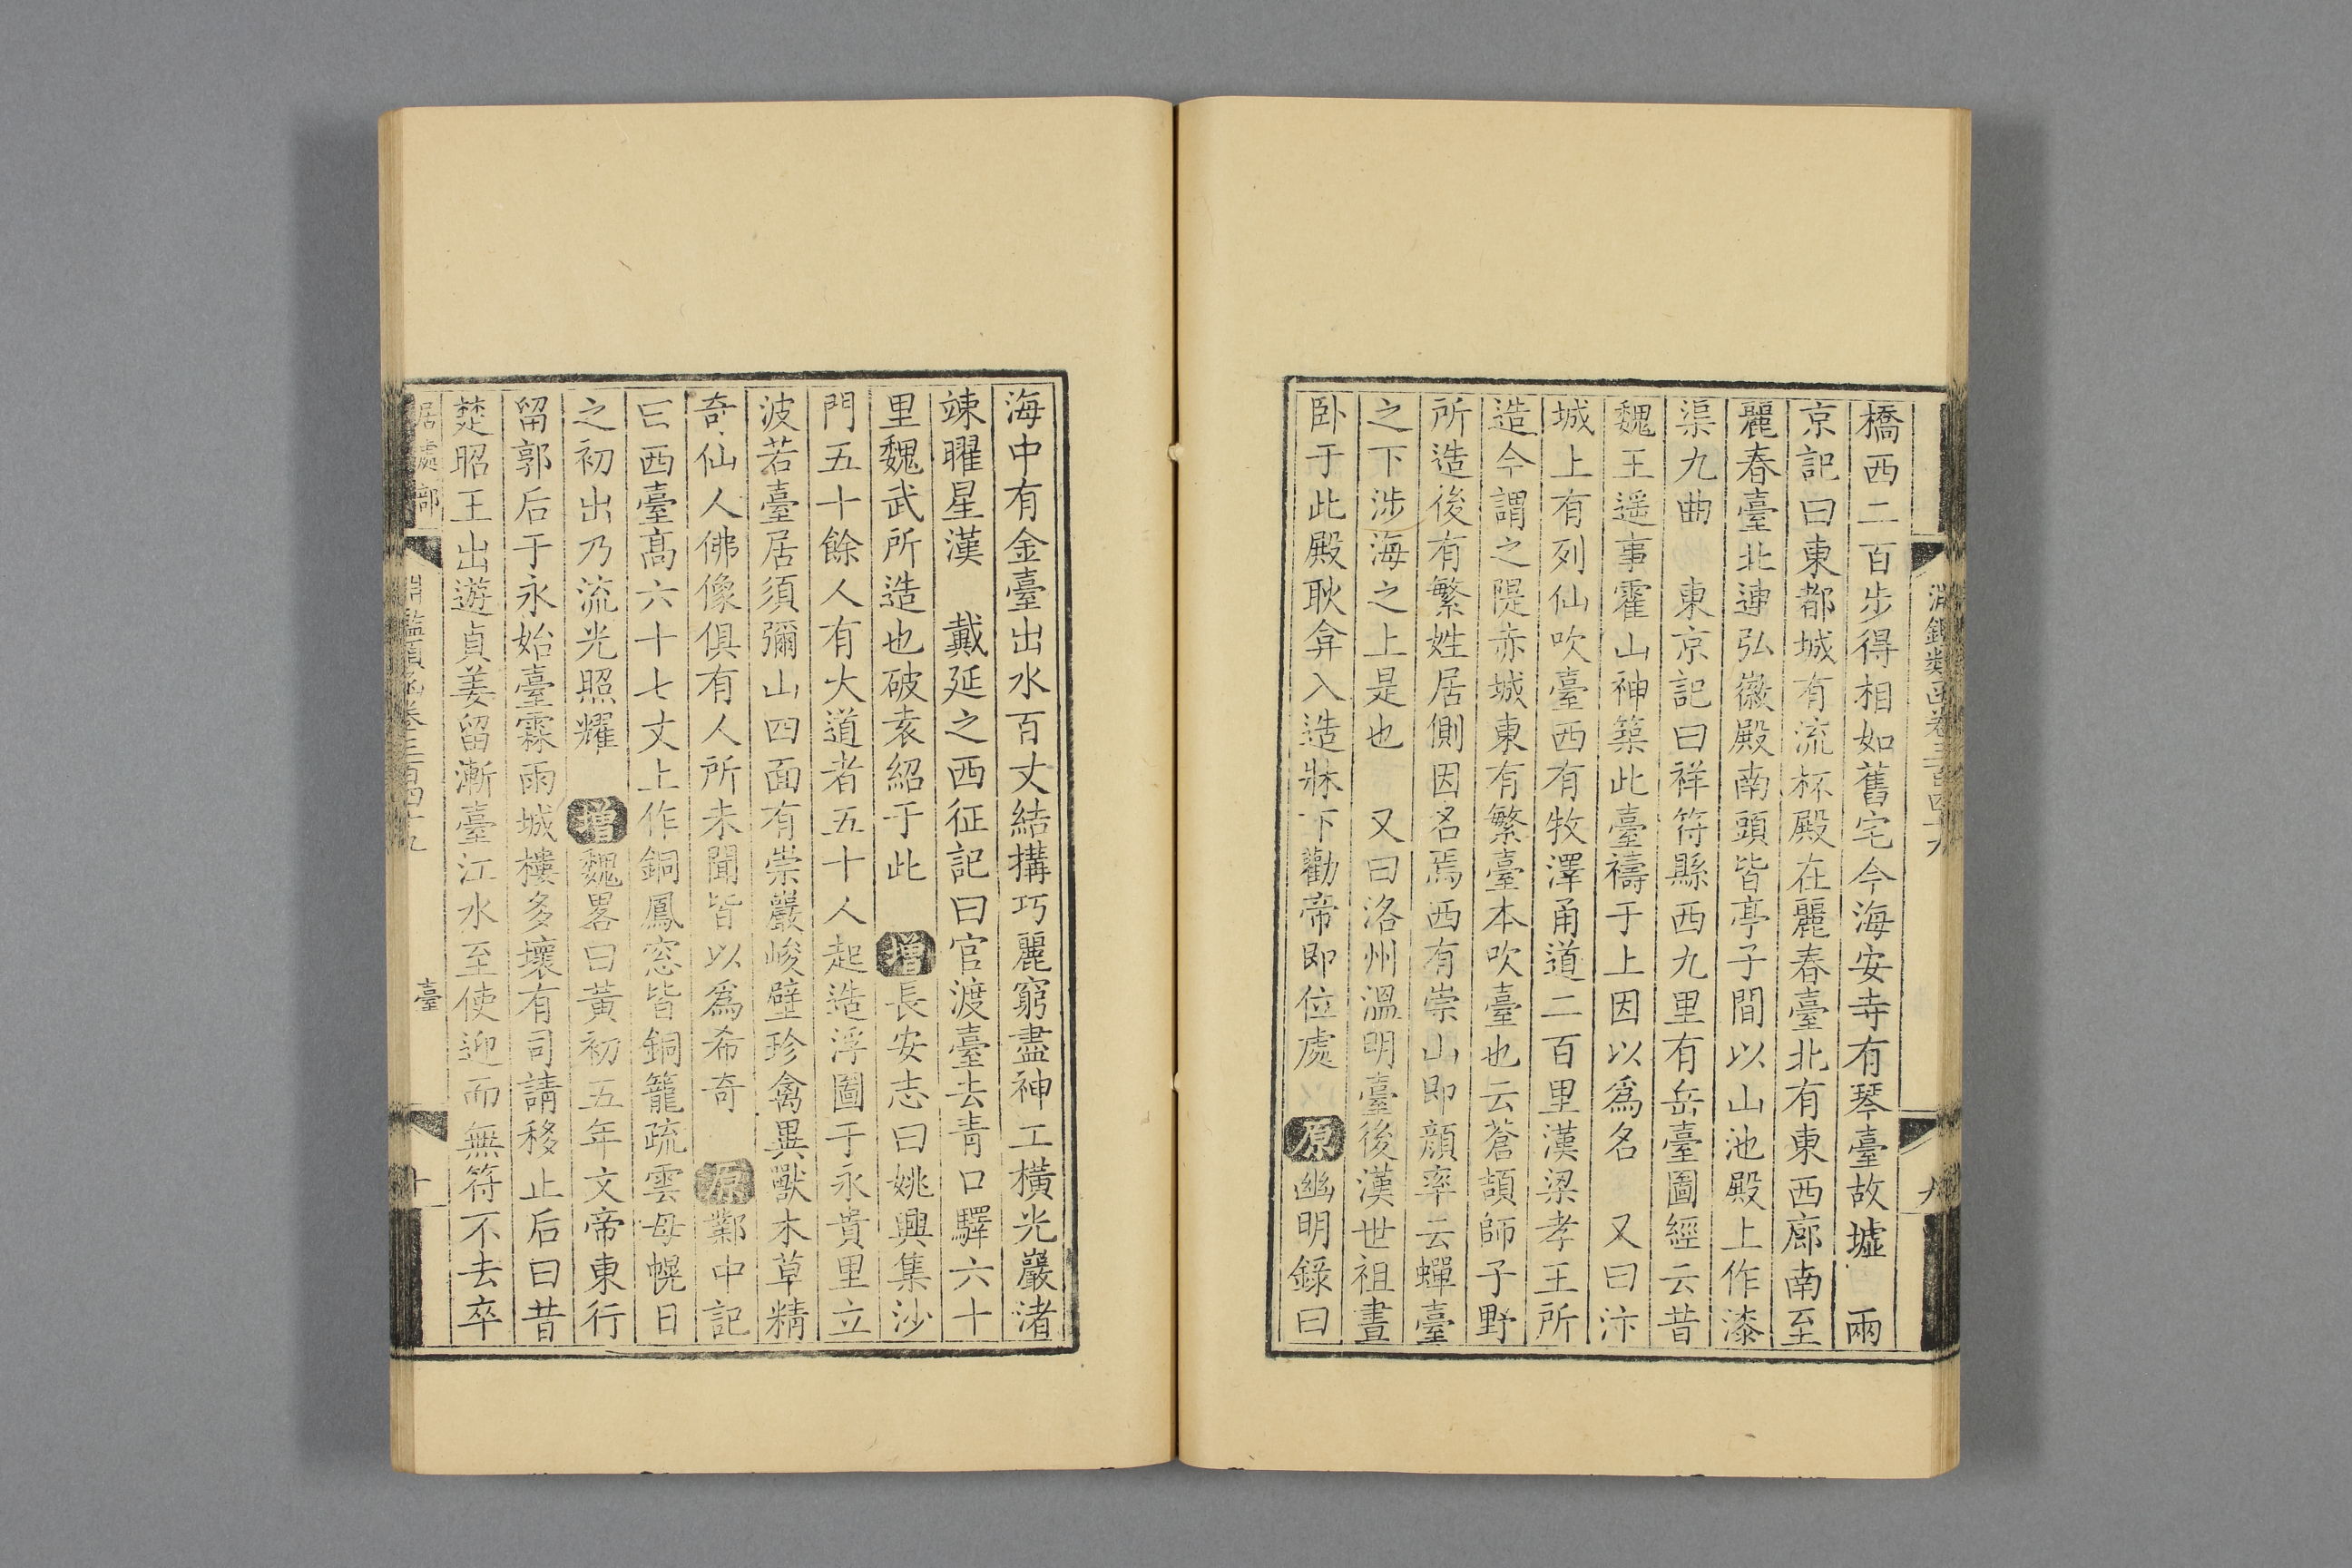 淵鑑類函卷三百四十九
九
橋西二百步得相如舊宅今海安寺有琴臺故墟　兩
京記曰東都城有流杯殿在麗春臺北有東西廊南至
麗春臺北連弘徽殿南頭皆亭子間以山池殿上作漆
渠九曲　東京記曰祥符縣西九里有岳臺圖經云昔
魏王遥事霍山神築此臺禱于上因以爲名　又曰汴
城上有列仙吹臺西有牧澤甬道二百里漢梁孝王所
造今謂之隄赤城東有繁臺本吹臺也云蒼頡師子野
所造後有繁姓居側因名焉西有崇山即顔率云蟬臺
之下涉海之上是也　又曰洛州溫明臺後漢世祖晝
卧于此殿耿弇入造牀下勸帝即位處　原幽明錄曰
海中有金臺出水百丈結搆巧麗窮盡神工橫光巖渚
竦曜星漢　戴延之西征記曰官渡臺去青口驛六十
里魏武所造也破袁紹于此　增長安志曰姚興集沙
門五十餘人有大道者五十人起造浮圖于永貴里立
波若臺居須彌山四面有崇巖峻壁珍禽異獸木草精
奇仙人佛像俱有人所未聞皆以爲希奇　原鄴中記
曰西臺高六十七丈上作銅鳳窓皆銅籠疏雲母幌日
之初出乃流光照耀　增魏畧曰黃初五年文帝東行
留郭后于永始臺霖雨城樓多壞有司請移止后曰昔
楚昭王出遊貞姜留漸臺江水至使迎而無符不去卒
居處部
淵鑑類函卷三百四十九
臺
十